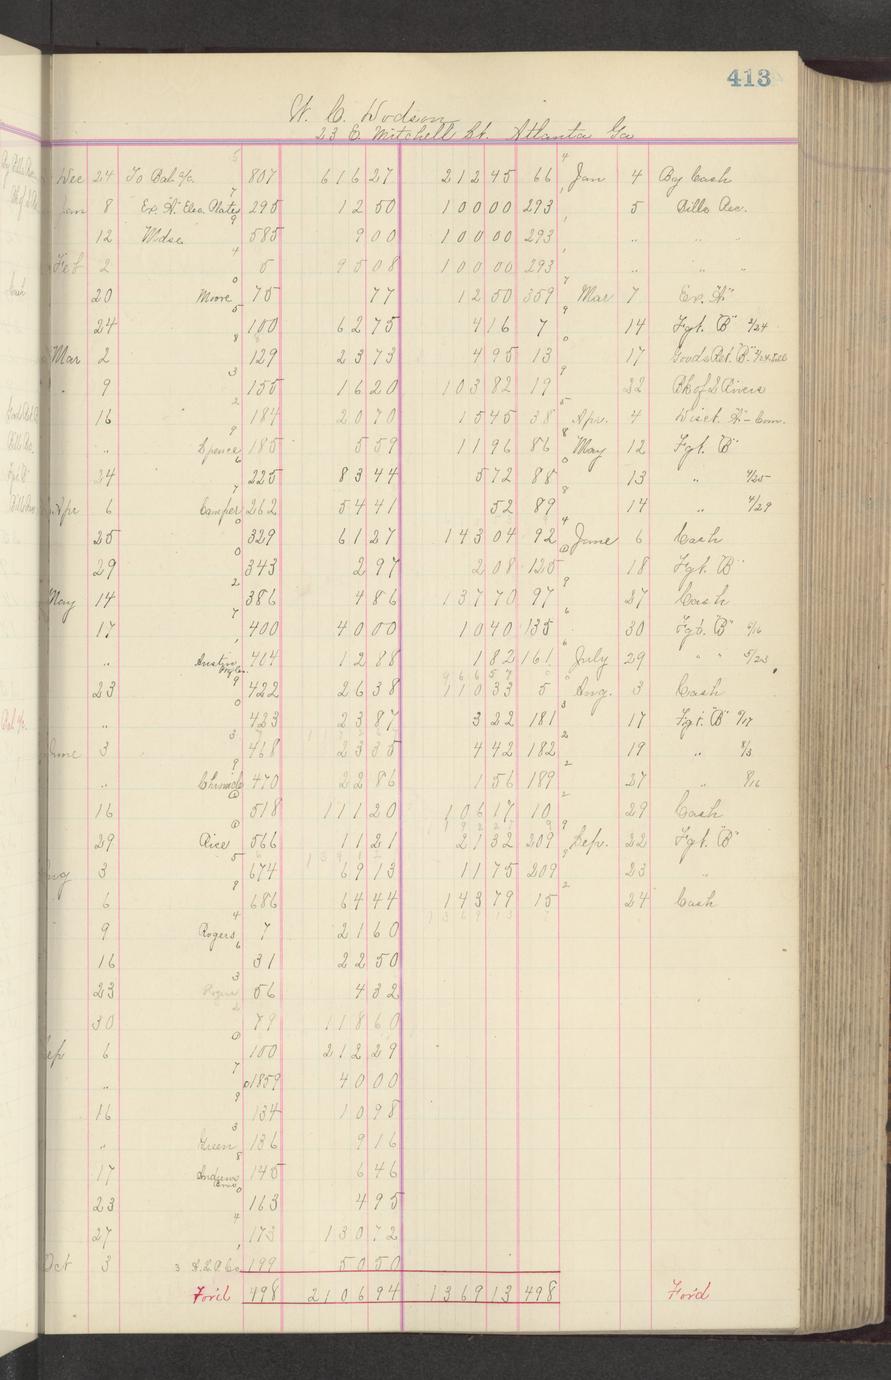 413
W. C. Dodson
23 E. Mitchell St. Atlanta Ga
Dec 24 To Bal a/c. 5 807 616 27 212 45 66 4 Jan 4 By Cash
Jan 8 Ex. "A" Elec. Plates 7 295 12 50 100 00 293 , 5 Bills Rec.
12 Mdse. 9 585 9 00 100 00 293 , " " "
Feb 2 4 5 95 08 100 00 293 , " " "
20 Moore 0 75 77 12 50 359 7 Mar 7 Ex. "A"
24 5 100 62 75 4 16 7 9 14 Fgt. "B" 2/24
Mar 2 8 129 23 73 4 95 13 0 17 Goods Ret. "B"
" 9 3 155 16 20 103 82 19 9 22 Bk of 2 Rivers
16 2 184 20 70 15 45 38 5 Apr. 4 Disct. "A" - Com.
" Spence 9 185 5 59 11 96 86 8 May 12 Fgt. "B"
24 6 225 83 44 5 72 88 0 13 " 4/25
Apr 6 Camper 7 262 54 41 52 89 8 14 " 4/29
25 0 329 61 27 143 04 92 4 June 6 Cash
29 0 343 2 97 2 08 125 0 18 Fgt. "B"
May 14 2 386 4 86 137 70 97 9 27 Cash
17 7 400 40 00 10 40 135 6 30 Fgt. "B" 6/16
" Austin , 414 12 88 1 82 161 6 July 29 " " 5/23
966 57
23 9 422 26 38 110 33 5 0 Aug. 3 Cash
" 0 423 23 87 3 22 181 3 17 Fgt. "B" 9/17
June 3 3 468 23 35 4 42 182 2 19 " 8/3
" Chronicle 9 470 22 86 1 56 189 2 27 " 8/16
16 0 518 111 20 106 17 10 2 29 Cash
29 Rice 0 566 11 21 21 32 209 9 Sep. 22 Fgt. "B"
Aug 3 5 674 69 13 11 75 209 9 23 "
6 8 686 64 44 143 79 15 2 24 Cash
1369 13
9 Rogers 4 7 21 60
16 6 31 22 50
23 Rogers 3 56 4 32
30 2 79 118 60
Sep 6 0 100 212 29
" 7 1859 40 00
16 9 134 10 98
" Green 3 136 9 16
17 Andrews 8 145 6 46
23 0 163 4 95
27 4 173 130 72
Oct 3 3 A.L.A Co , 199 50 50
For'd 498 2106 94 1369 13 498 For'd